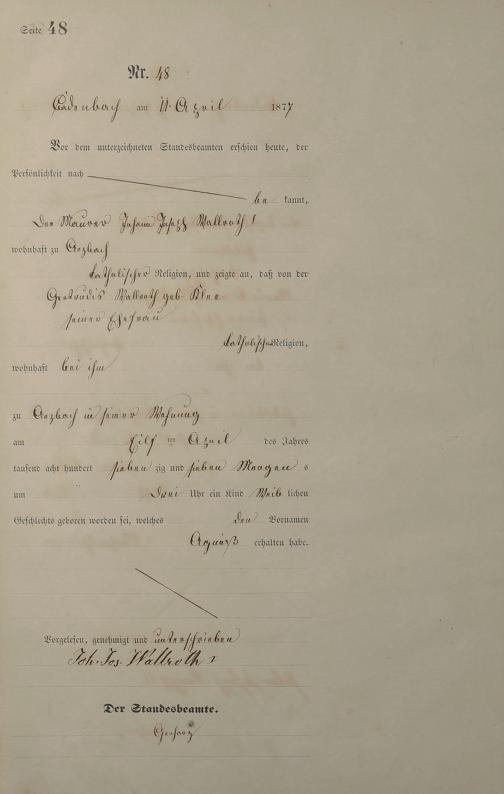 Seite 48
Nr. 48
Cadenbach am 11. April 1877
Vor dem unterzeichneten Standesbeamten erschien heute, der
Persönlichkeit nach
be kannt,
Der Maurer Johann Joseph Wallroth I
wohnhaft zu Arzbach
katholischer Religion, und zeigte an, daß von der
Gertrudis Wallroth geb. Klee
seiner Ehefrau
katholischer Religion,
wohnhaft bei ihm
zu Arzbach in seiner Wohnung
am Eilf ten April des Jahres
tausend acht hundert sieben zig und sieben Morgen s
um Drei Uhr ein Kind Weib lichen
Geschlechts geboren worden sei, welches den Vornamen
Agnes erhalten habe.
Vorgelesen, genehmigt und unterschrieben
Joh. Jos. Wallroth I
Der Standesbeamte.